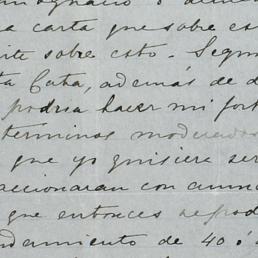 la carta que sobre es
sobre esto. Segun
Cuba, además de d
podria hacer mi for
terminos moderados
que yo quisiera ser
accionaran con
que entonces se pod
ndamiento de 40 ó